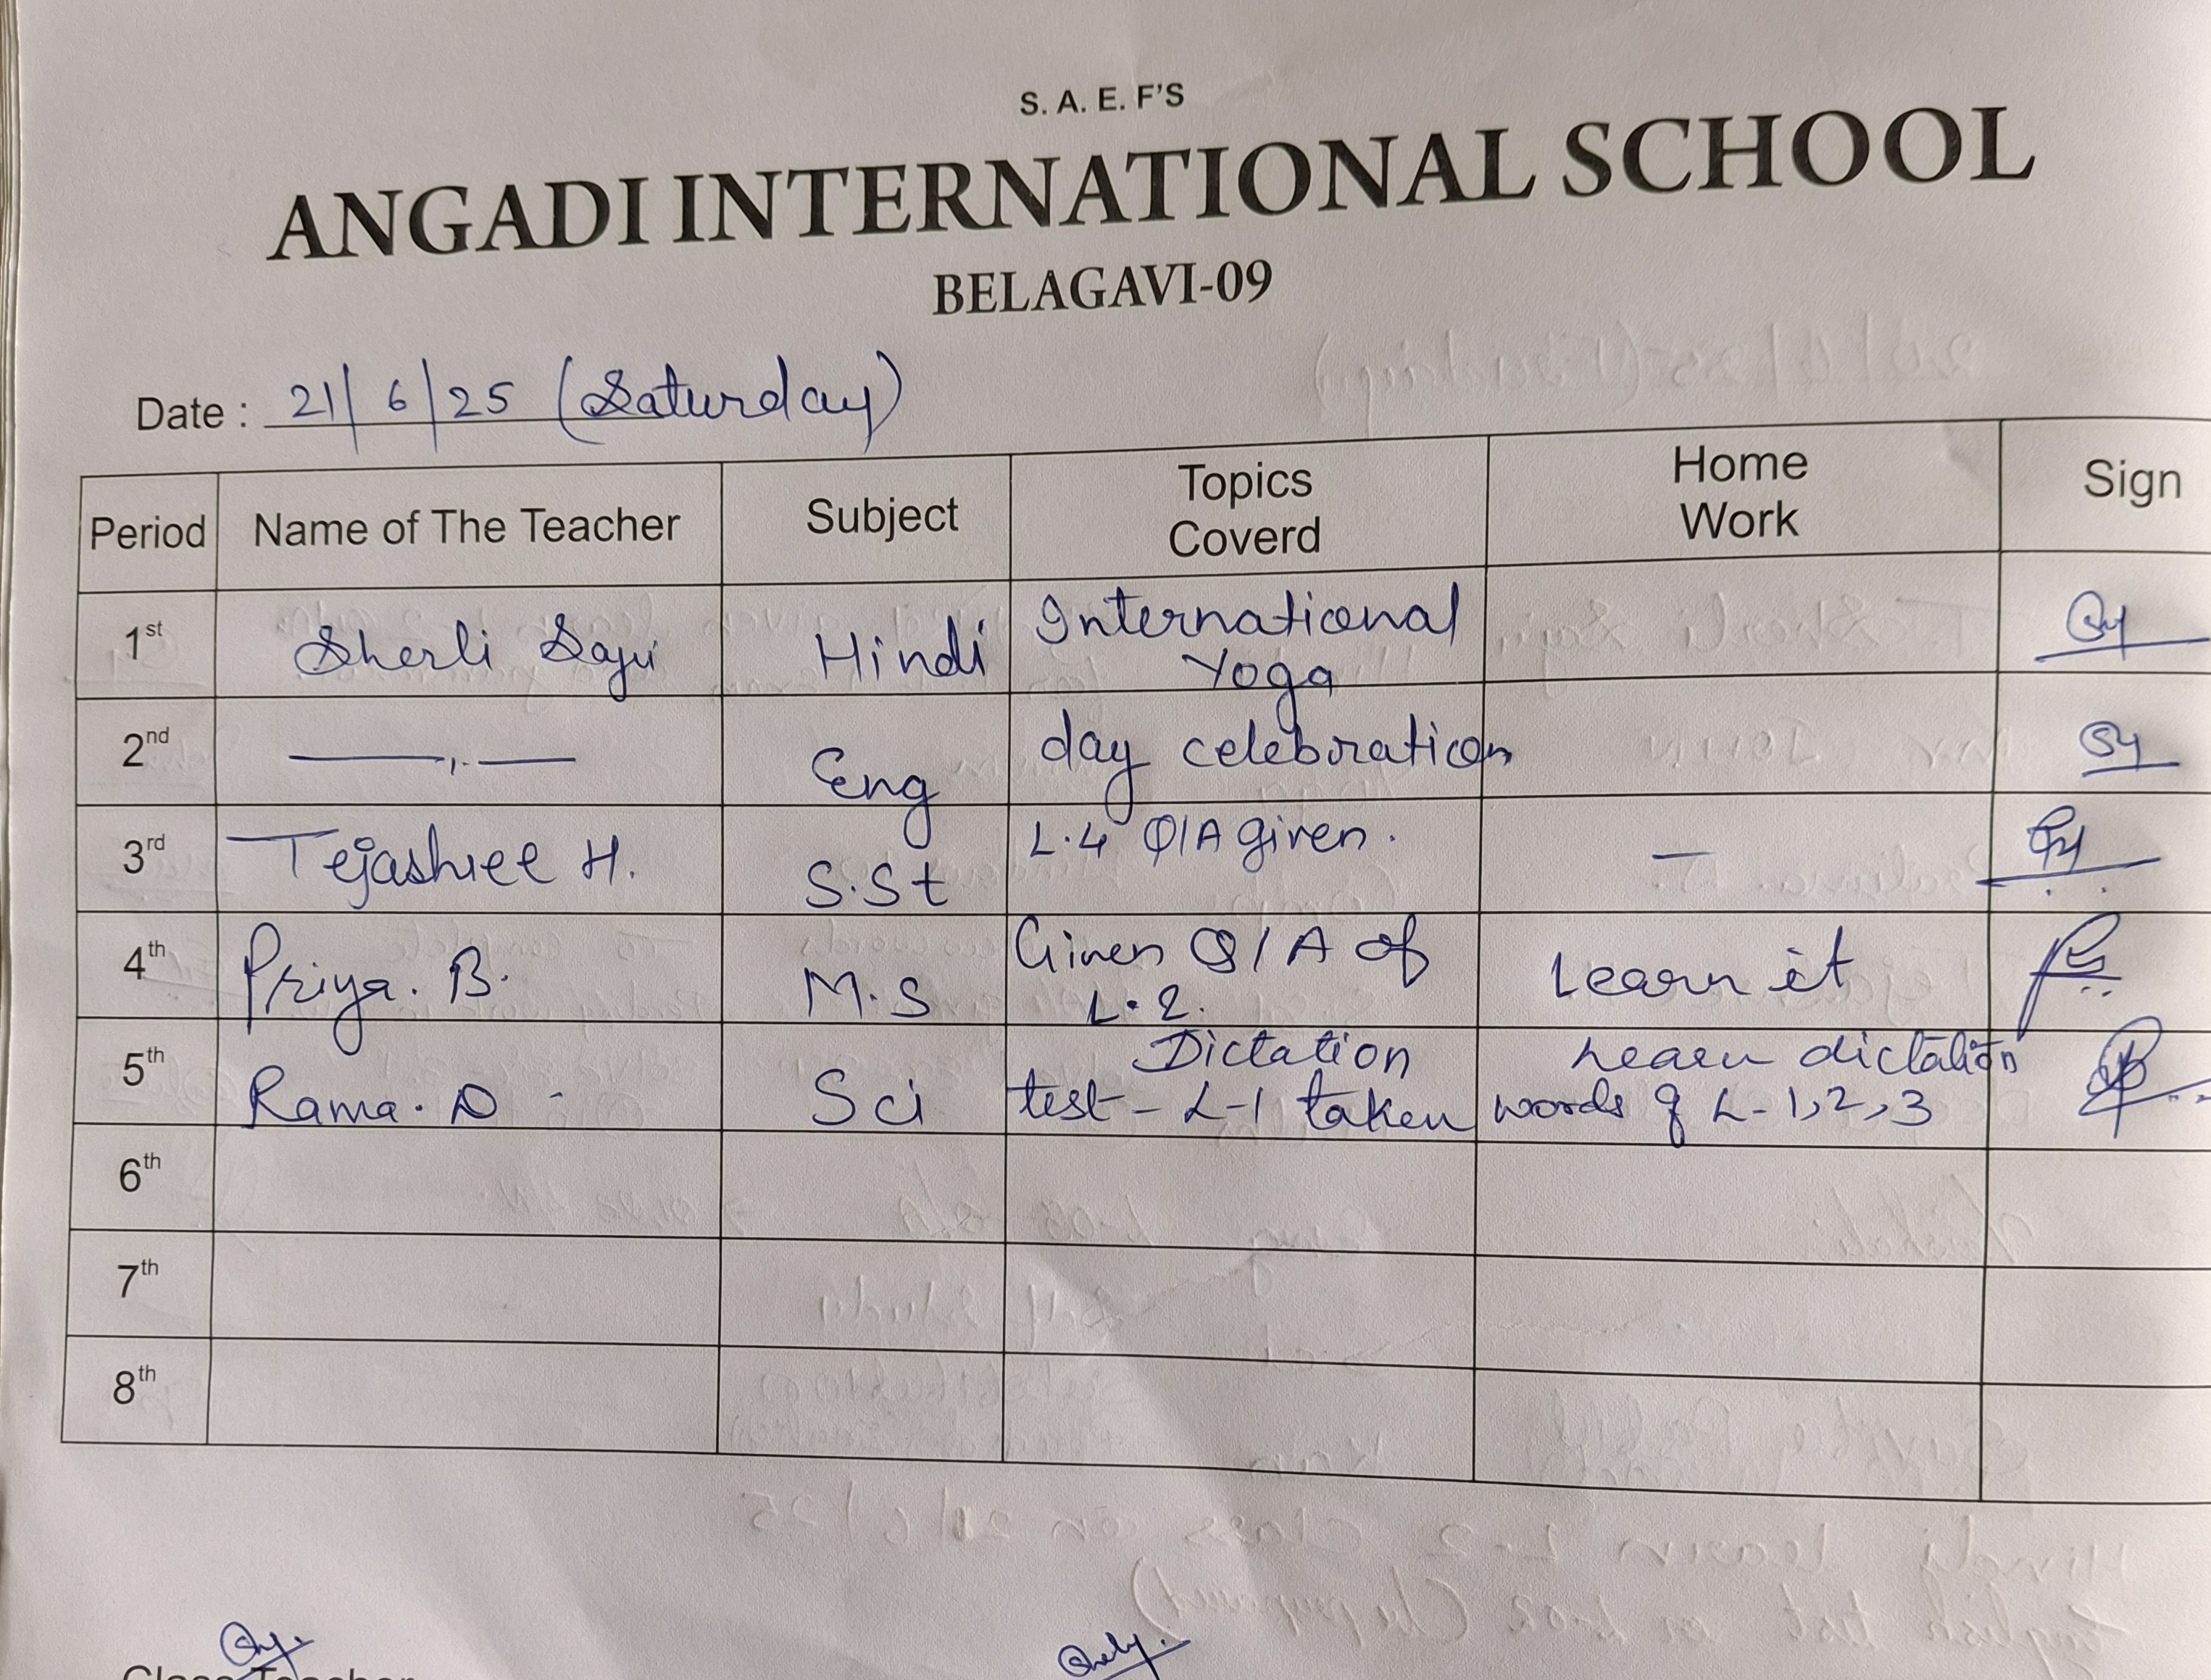 S. A. E. F'S
ANGADI INTERNATIONAL SCHOOL
BELAGAVI-09
Date : 21/6/25 (Saturday)
Period Name of The Teacher Subject Topics Coverd Home Work Sign
1st Sherli Saju Hindi International Yoga
2nd —,,— Eng day celebration
3rd Tejashree H. S.St L.4 Q/A given. —
4th Priya. B. M.S Given Q/A of L.2. Learn it
5th Rama. D Sci Dictation test - L-1 taken Learn dictation words of L-1,2,3
6th
7th
8th
Class Teacher